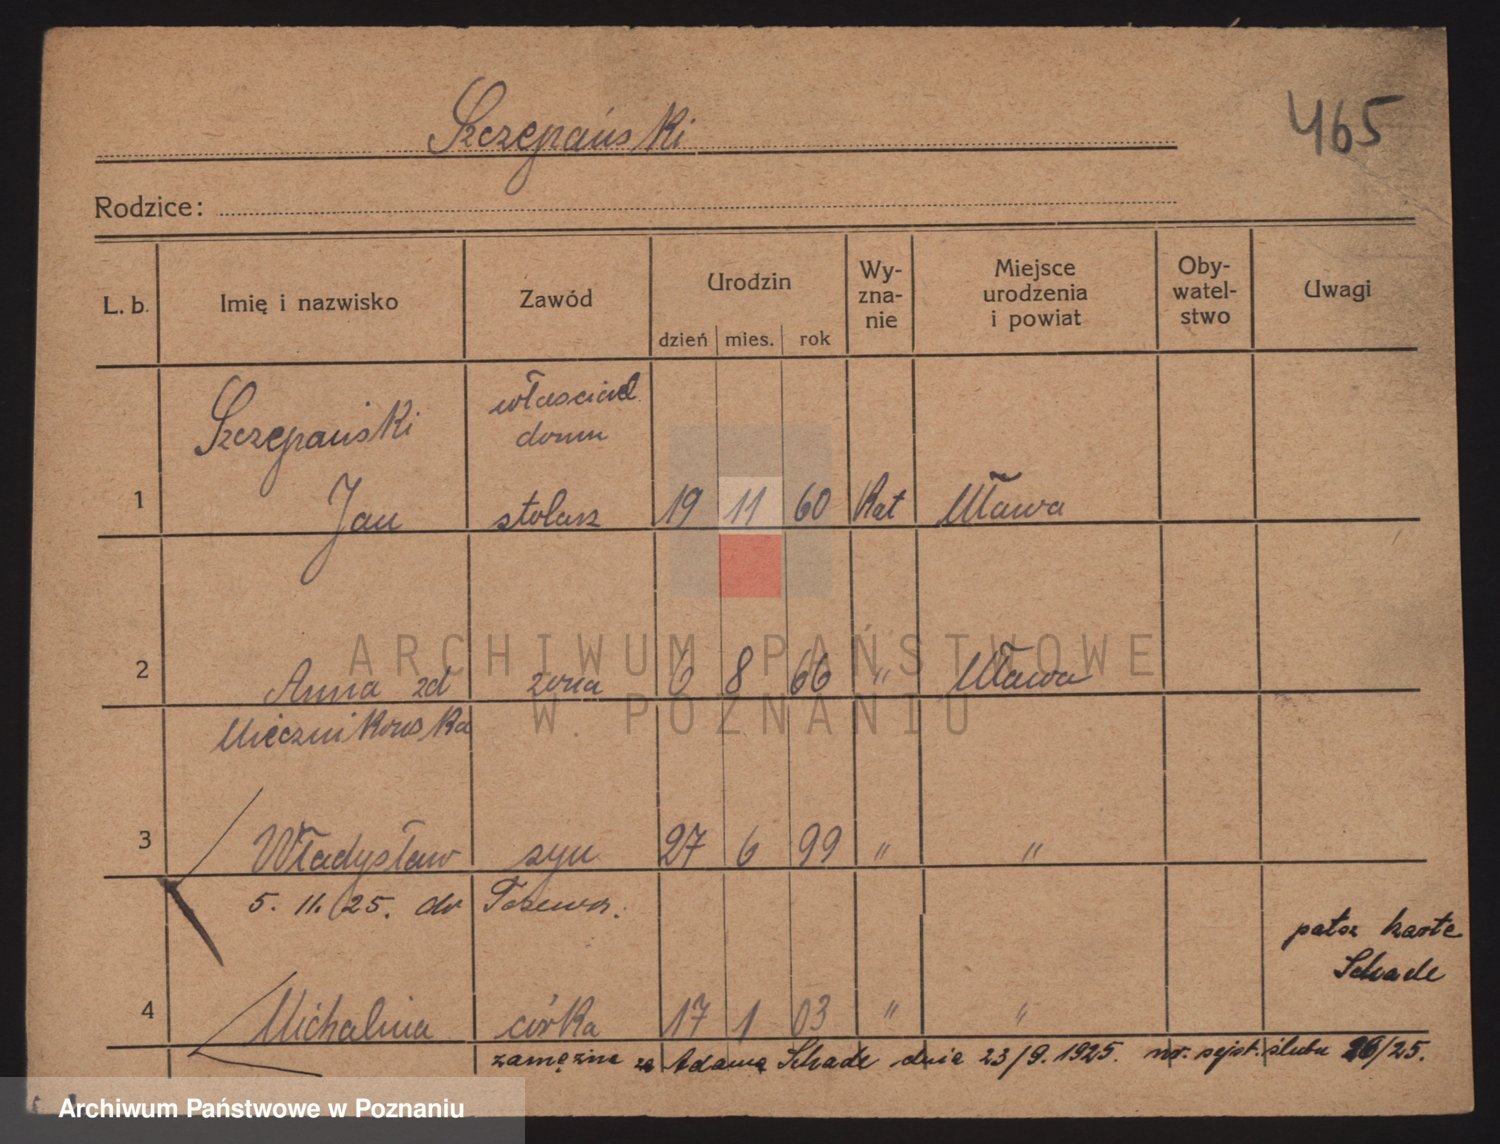 Szczepański
465
Rodzice:
L. b. Imię i nazwisko Zawód Urodzin dzień mies. rok Wy-zna-nie Miejsce urodzenia i powiat Oby-watel-stwo Uwagi
Szczepański właściciel
domu
1 Jan stolarz 19 11 60 Kat Mława
2 Anna zd żona 6 8 66 " Mława
Miecznikowska
3 Władysław syn 27 6 99 " "
5. 11. 25. do
patrz karte
Schade
4 Michalina córka 17 1 03 " "
zamężna za Adama Schade dnia 23/9. 1925. nr. rejst. ślubu 26/25.
ARCHIWUM PAŃSTWOWE
W. POZNANIU
Archiwum Państwowe w Poznaniu